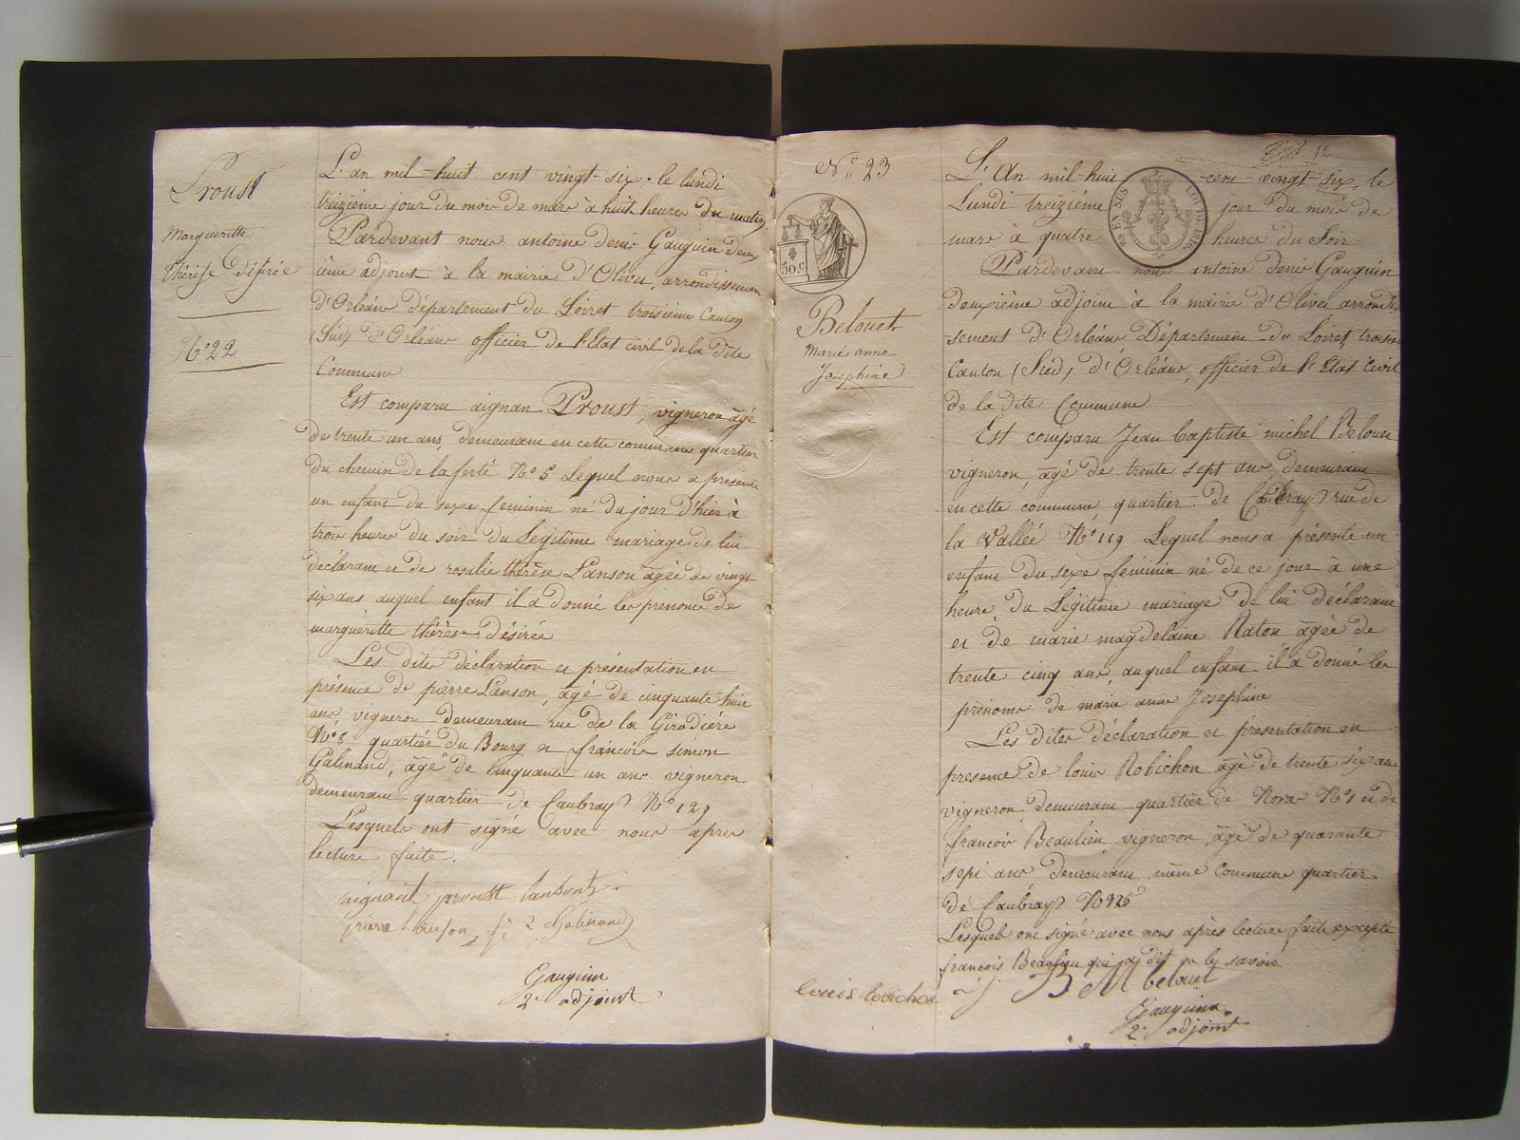 Proust
Margueritte
thérèse désirée
N° 22
L'an mil-huit cent vingt-six, le lundi
treizième jour du mois de mars à huit heures du matin
Pardevant nous antoine denis Gauguin deux
ième adjoint à la mairie d'Olivet, arrondissement
d'Orléans département du Loiret troisième Canton
(Sud) d'Orléans officier de l'Etat civil de la dite
Commune
Est comparu aignan Proust, vigneron agé
de trente un ans, demeurant en cette commune quartier
du chemin de la ferté N° 5 Lequel nous a présenté
un enfant du sexe feminin né du jour d'hier à
trois heures du soir du Légitime mariage de lui
déclarant et de rosalie thérèse Lanson agée de vingt
six ans auquel enfant il a donné les prenoms de
margueritte thérèse désirée
Les dites déclaration et présentation en
présence de pierre Lanson, agé de cinquante huit
ans vigneron demeurant rue de la Girodière
quartier du Bourg et francois simon
Galinand, agé de cinquante un ans vigneron
demeurant quartier de Caubray N° 129
Lesquels ont signé avec nous après
lecture faite.
aignant proust
Gauguin
2e adjoint
N° 23
50 c
Belouet
Marie anne
Joséphine
L'An mil-huit cent vingt six, le
EN SUS
Lundi treizième jour du mois de
mars à quatre heures du Soir
Pardevant nous antoine denis Gauguin
deuxième adjoint à la mairie d'Olivet arrondis
sement d'Orléans Département du Loiret troisième
Canton (Sud) d'Orléans, officier de l'Etat Civil
de la dite Commune
Est comparu Jean baptiste michel Belouet
vigneron, agé de trente sept ans, demeurant
en cette commune, quartier de Caubray rue de
la Vallée N° 119 Lequel nous a présenté un
enfant du sexe feminin né de ce jour à une
heure, du Légitime mariage de lui déclarant
et de marie magdelaine Raton agée de
trente cinq ans, auquel enfant il a donné les
prénoms de marie anne Joséphine
Les dites déclaration et présentation en
présence de louis Robichon agé de trente six ans
vigneron demeurant quartier de N° 1 et de
francois Beaulieu vigneron, agé de quarante
sept ans demeurant même Commune quartier
de Caubray N° 126
Lesquels ont signé avec nous après lecture faite excepté
francois Beaulieu qui a dit ne le savoir
louis robichon
B M belouet
Gauguin
2e adjoint